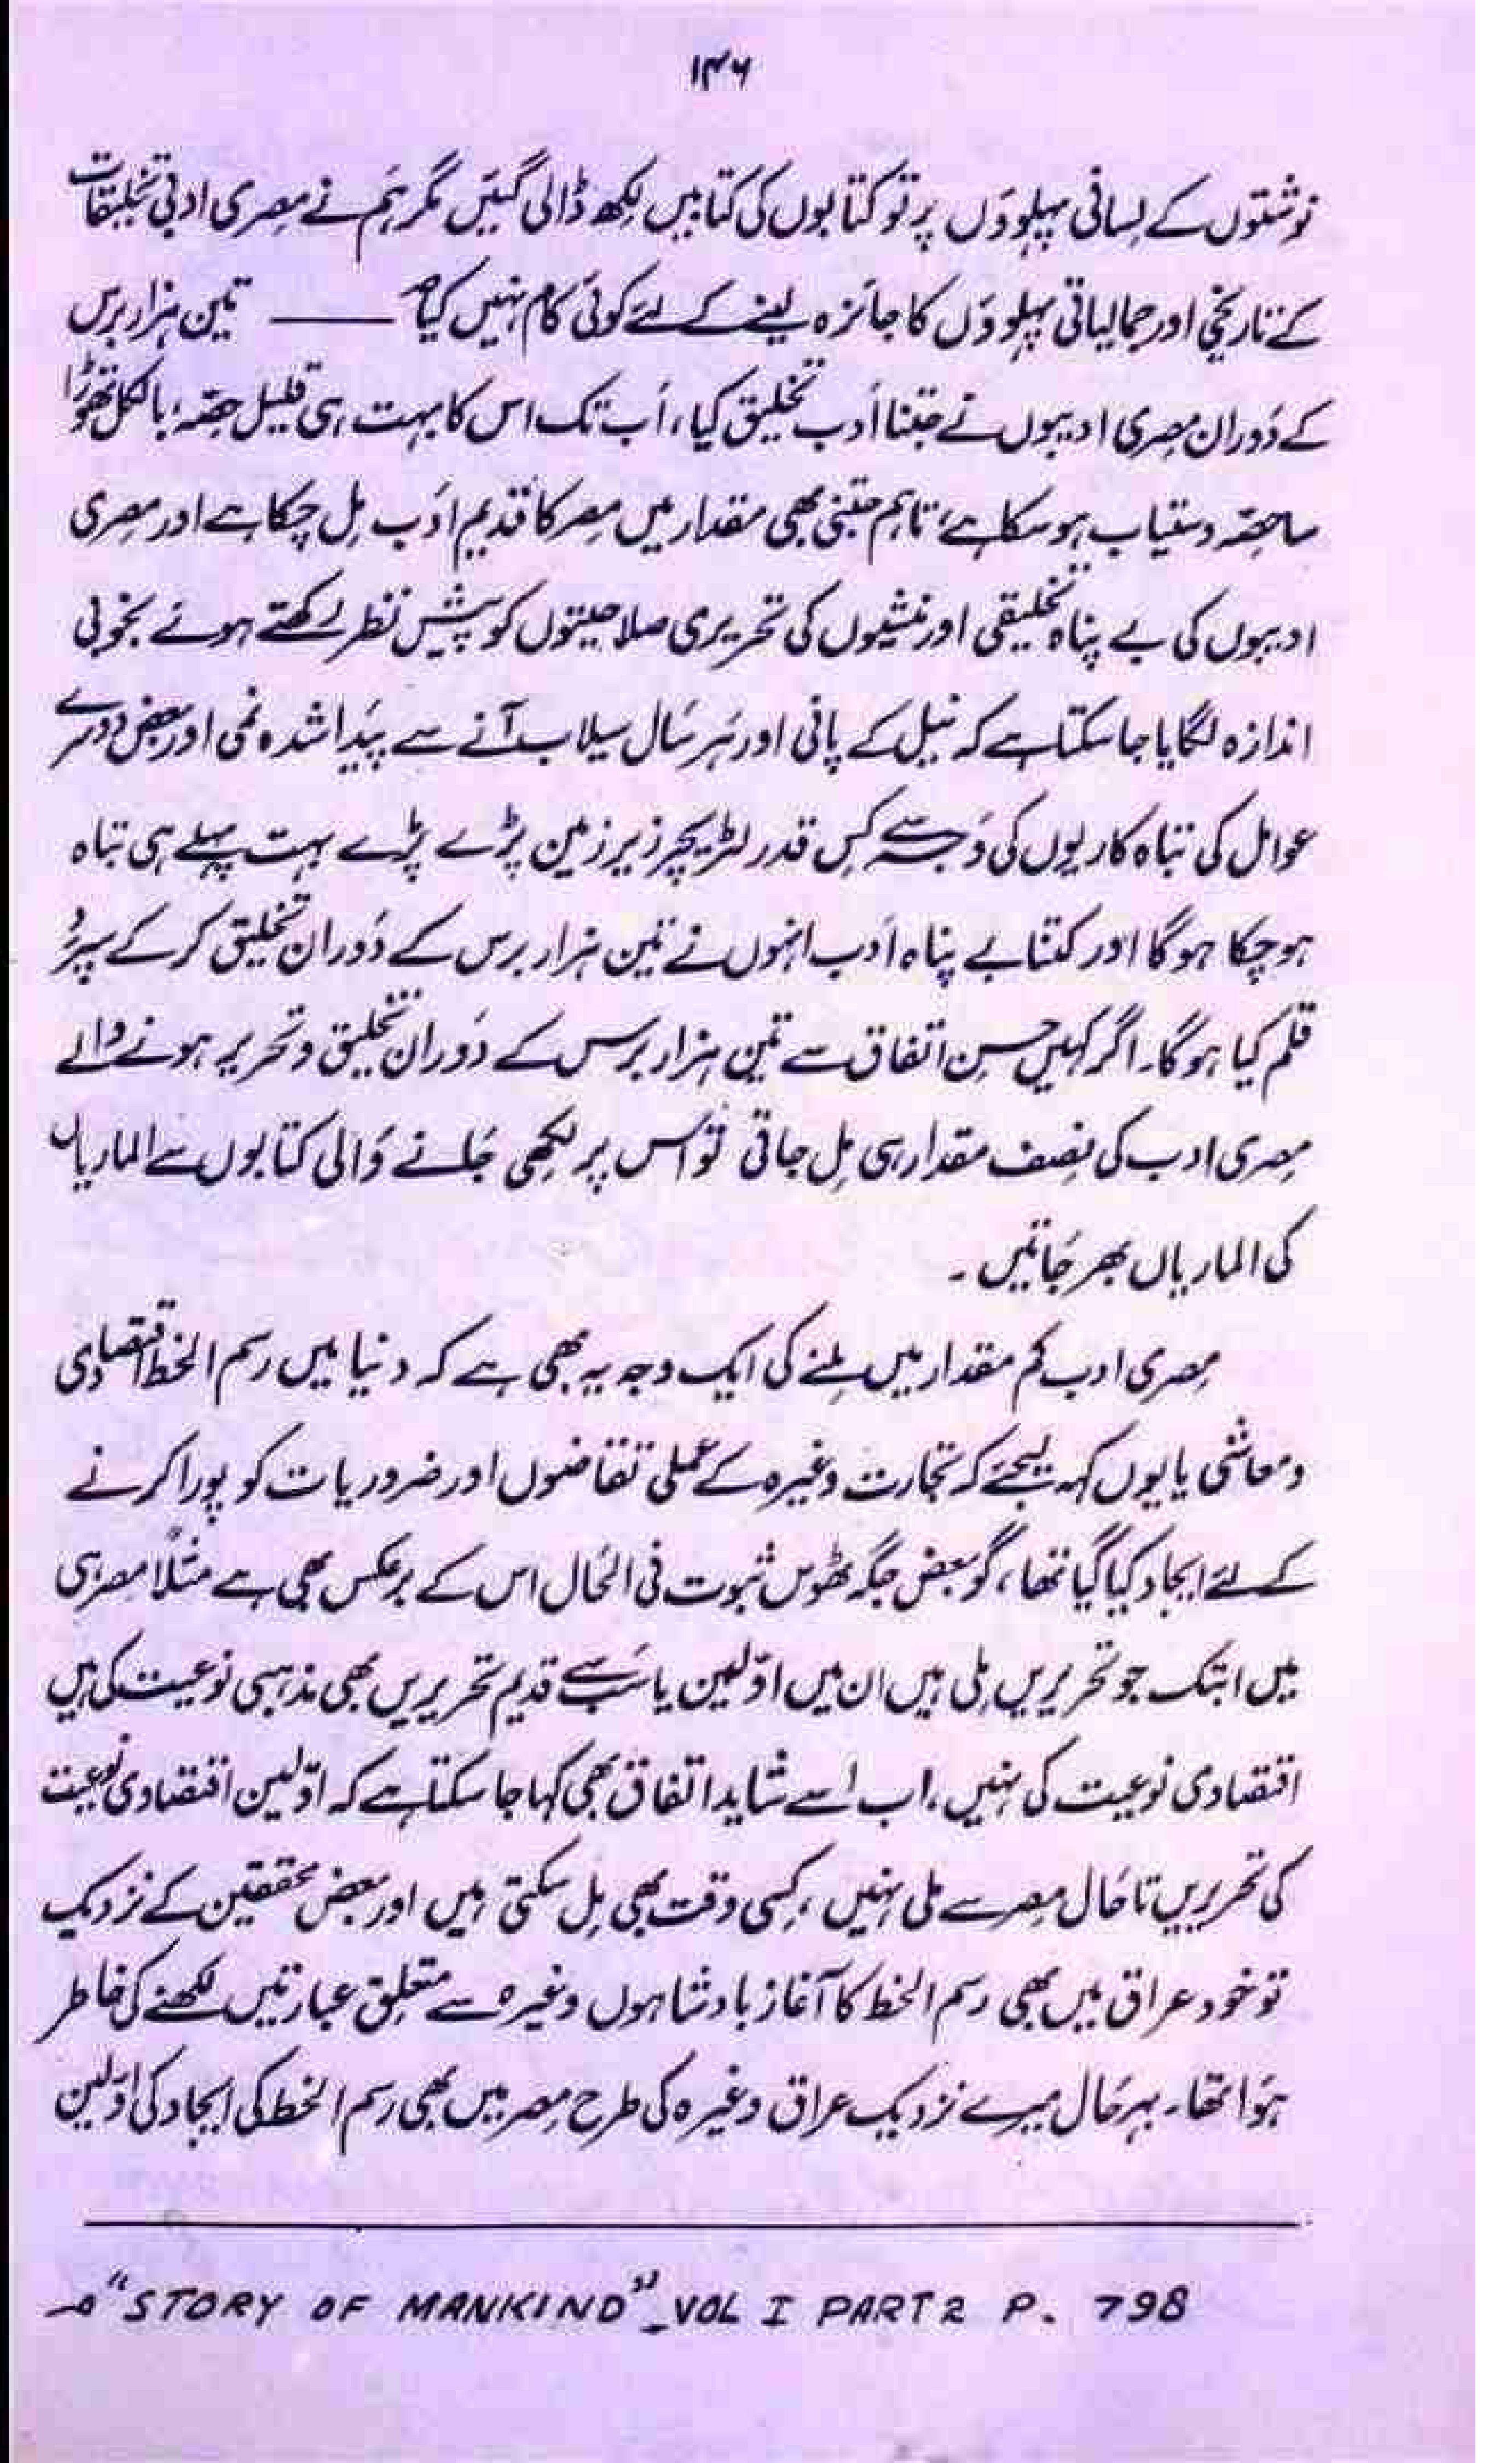 ۱۴۶
نوشتوں کے لسانی پہلووَں پر تو کتابوں کی کتابیں لکھ ڈالی گئیں مگر ہم نے مصری ادبی تخلیقات
کے تاریخی اور جمالیاتی پہلووَں کا جائزہ لینے کے لئے کوئی کام نہیں کیا ——— تین ہزار برس
کے دَوران مصری ادیبوں نے جتنا اَدب تخلیق کیا، اَب تک اس کا بہت ہی قلیل حصّہ، بالکل تھوڑا
سا حصّہ دستیاب ہو سکا ہے، تاہم جتنی بھی مقدار میں مصر کا قدیم ادَب مِل چکا ہے اور مصری
ادیبوں کی بے پناہ تخلیقی اور منشیوں کی تحریری صلاحیتوں کو پیشِ نظر رکھتے ہوئے بخوبی
اندازہ لگایا جا سکتا ہے کہ نیل کے پانی اور ہَر سَال سیلاب آنے سے پیَدا شدہ نمی اور بعض دوسرے
عوامل کی تباہ کاریوں کی وَجہ سے کِس قدر لٹریچر زیر زمین پڑے پڑے بہت پہلے ہی تباہ
ہو چکا ہو گا اور کتنا بے پناہ اَدب انہوں نے تین ہزار برس کے دَوران تخلیق کر کے سپردِ
قلم کیا ہو گا۔ اگر کہیں حسنِ اتفاق سے تین ہزار برس کے دَوران تخلیق و تحریر ہونے والے
مِصری ادب کی نِصف مقدار ہی مِل جاتی تو اس پر لکھی جَانے وَالی کتابوں سے الماریاں
کی الماریاں بھر جَاتیں ۔
مِصری ادب کم مقدار میں مِلنے کی ایک وجہ یہ بھی ہے کہ دنیا میں رسم الخط اقتصادی
و معاشی یا یوں کہہ لیجئے کہ تجارت وغیرہ کے عملی تقاضوں اور ضروریات کو پورا کرنے
کے لئے ایجاد کیا گیا تھا، گو بعض جگہ ٹھوس ثبوت فی الحَال اس کے برعکس بھی ہے مثلاً مصر ہی
میں ابتک جو تحریریں مِلی ہیں ان میں اوّلین یا سَب سے قدیم تحریریں بھی مذہبی نوعیت کی ہیں
اقتصادی نوعیت کی نہیں، اب اسے شاید اتفاق بھی کہا جا سکتا ہے کہ اوّلین اقتصادی نوعیت
کی تحریریں تا حَال مِصر سے ملی نہیں، کِسی وقت بھی مِل سکتی ہیں اور بعض محققین کے نزدیک
تو خود عراق میں بھی رسم الخط کا آغاز بادشاہوں وغیرہ سے متعلق عبارتیں لکھنے کی خاطر
ہوَا تھا۔ بہرحَال میرے نزدیک عراق وغیرہ کی طرح مِصر میں بھی رسم الخط کی ایجاد کی اوّلین
"STORY OF MANKIND" VOL I PART 2 P. 798